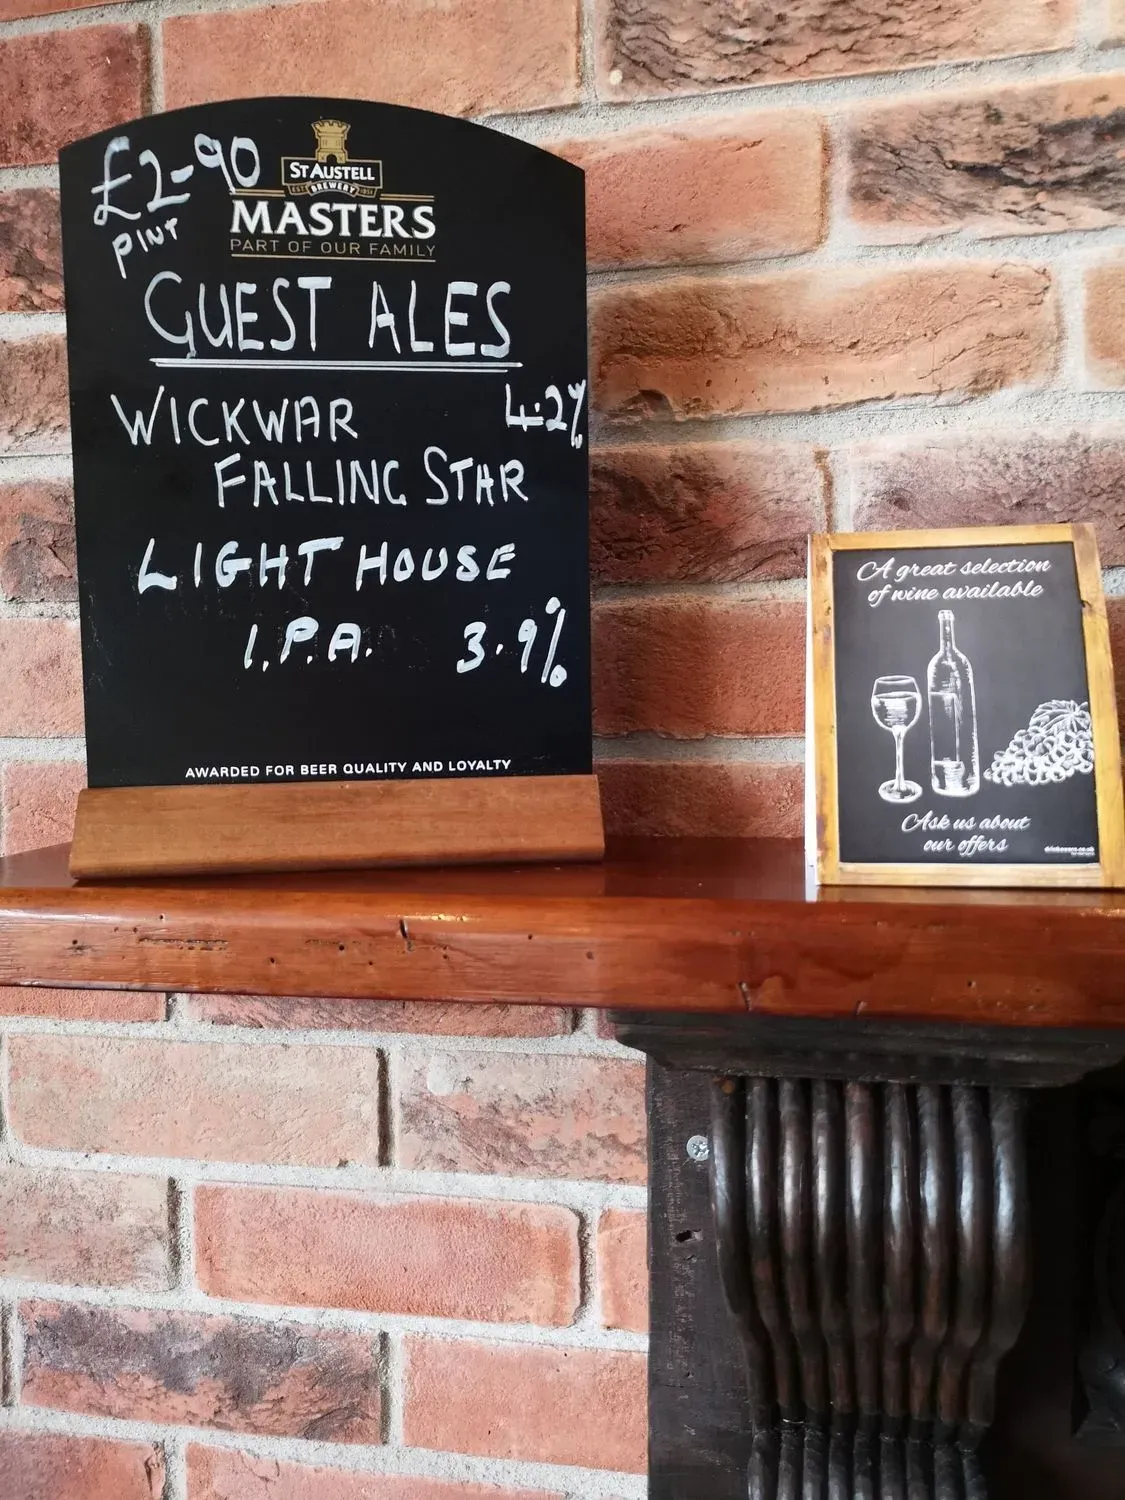 £2-90
PINT
ST AUSTELL
BREWERY
MASTERS
PART OF OUR FAMILY
GUEST ALES
WICKWAR 4.2%
FALLING STAR
LIGHT HOUSE
I.P.A. 3.9%
AWARDED FOR BEER QUALITY AND LOYALTY
A great selection
of wine available
Ask us about
our offers